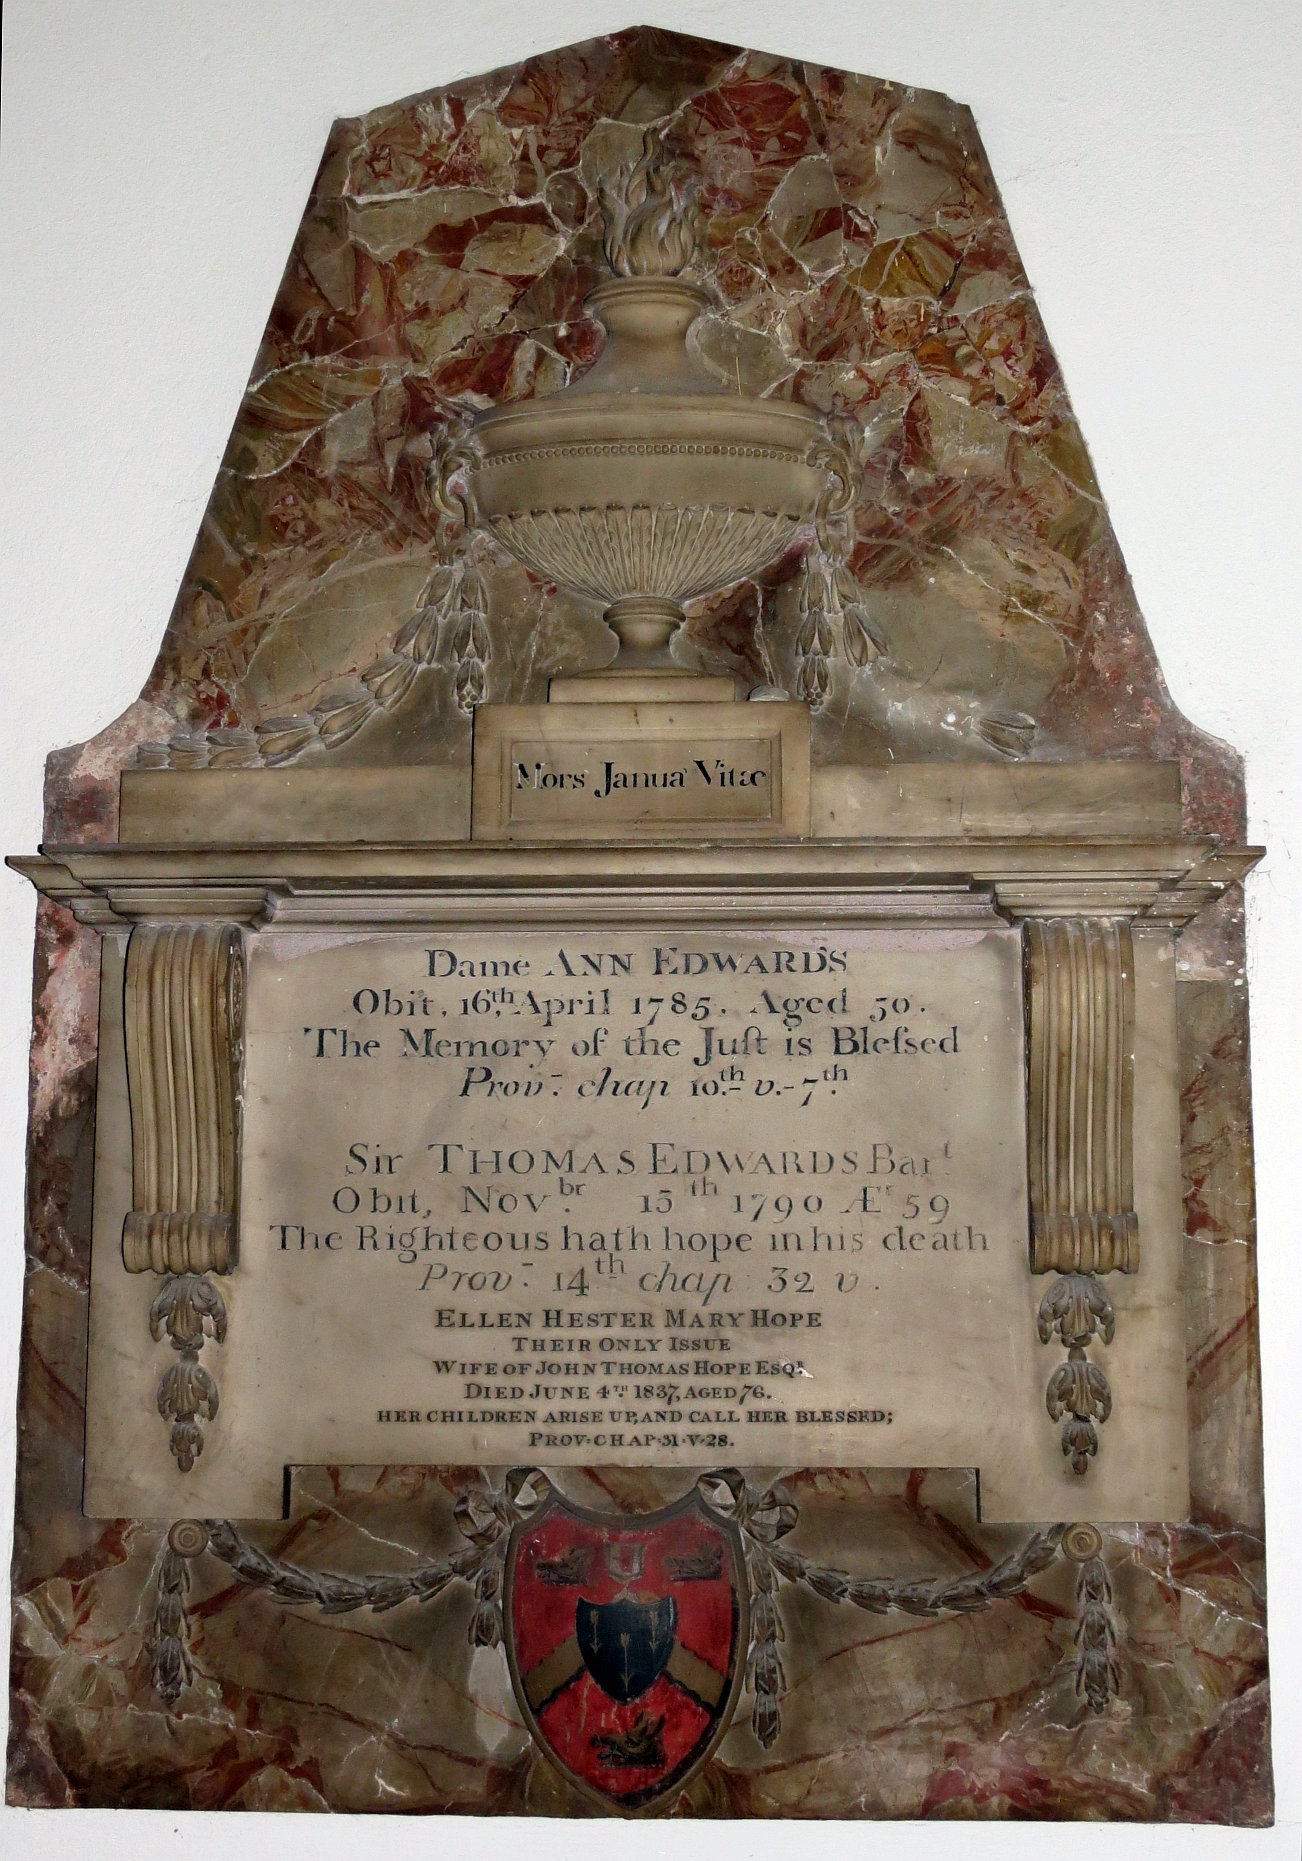 Mors Janua Vitæ
Dame ANN EDWARDS
Obit, 16th, April 1785. Aged 50.
The Memory of the Juſt is Bleſsed
Prov: chap 10th v. 7th
Sir THOMAS EDWARDS Bart
Obit, Novbr. 15th 1790 Ætr 59
The Righteous hath hope in his death
Prov: 14th chap: 32 v.
ELLEN HESTER MARY HOPE
THEIR ONLY ISSUE
WIFE OF JOHN THOMAS HOPE ESQR.
DIED JUNE 4TH 1837, AGED 76.
HER CHILDREN ARISE UP, AND CALL HER BLESSED;
PROV: CHAP: 31: V: 28.